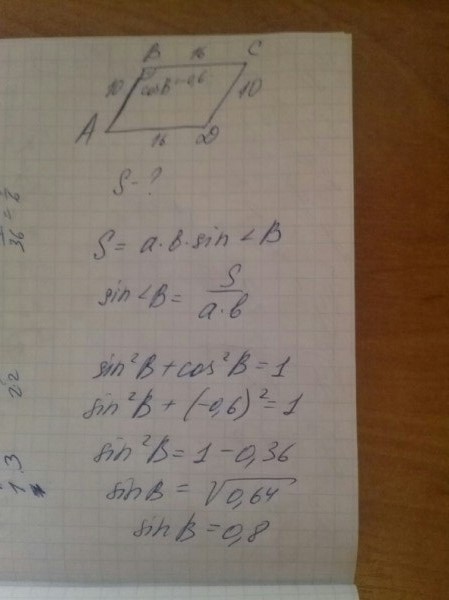 B 16 C
10 cosB=-0,6 10
A 16 D
S-?
S = a·b·sin∠B
sin∠B = S/a·b
sin²B + cos²B = 1
sin²B + (-0,6)² = 1
sin²B = 1 - 0,36
sinB = √0,64
sinB = 0,8